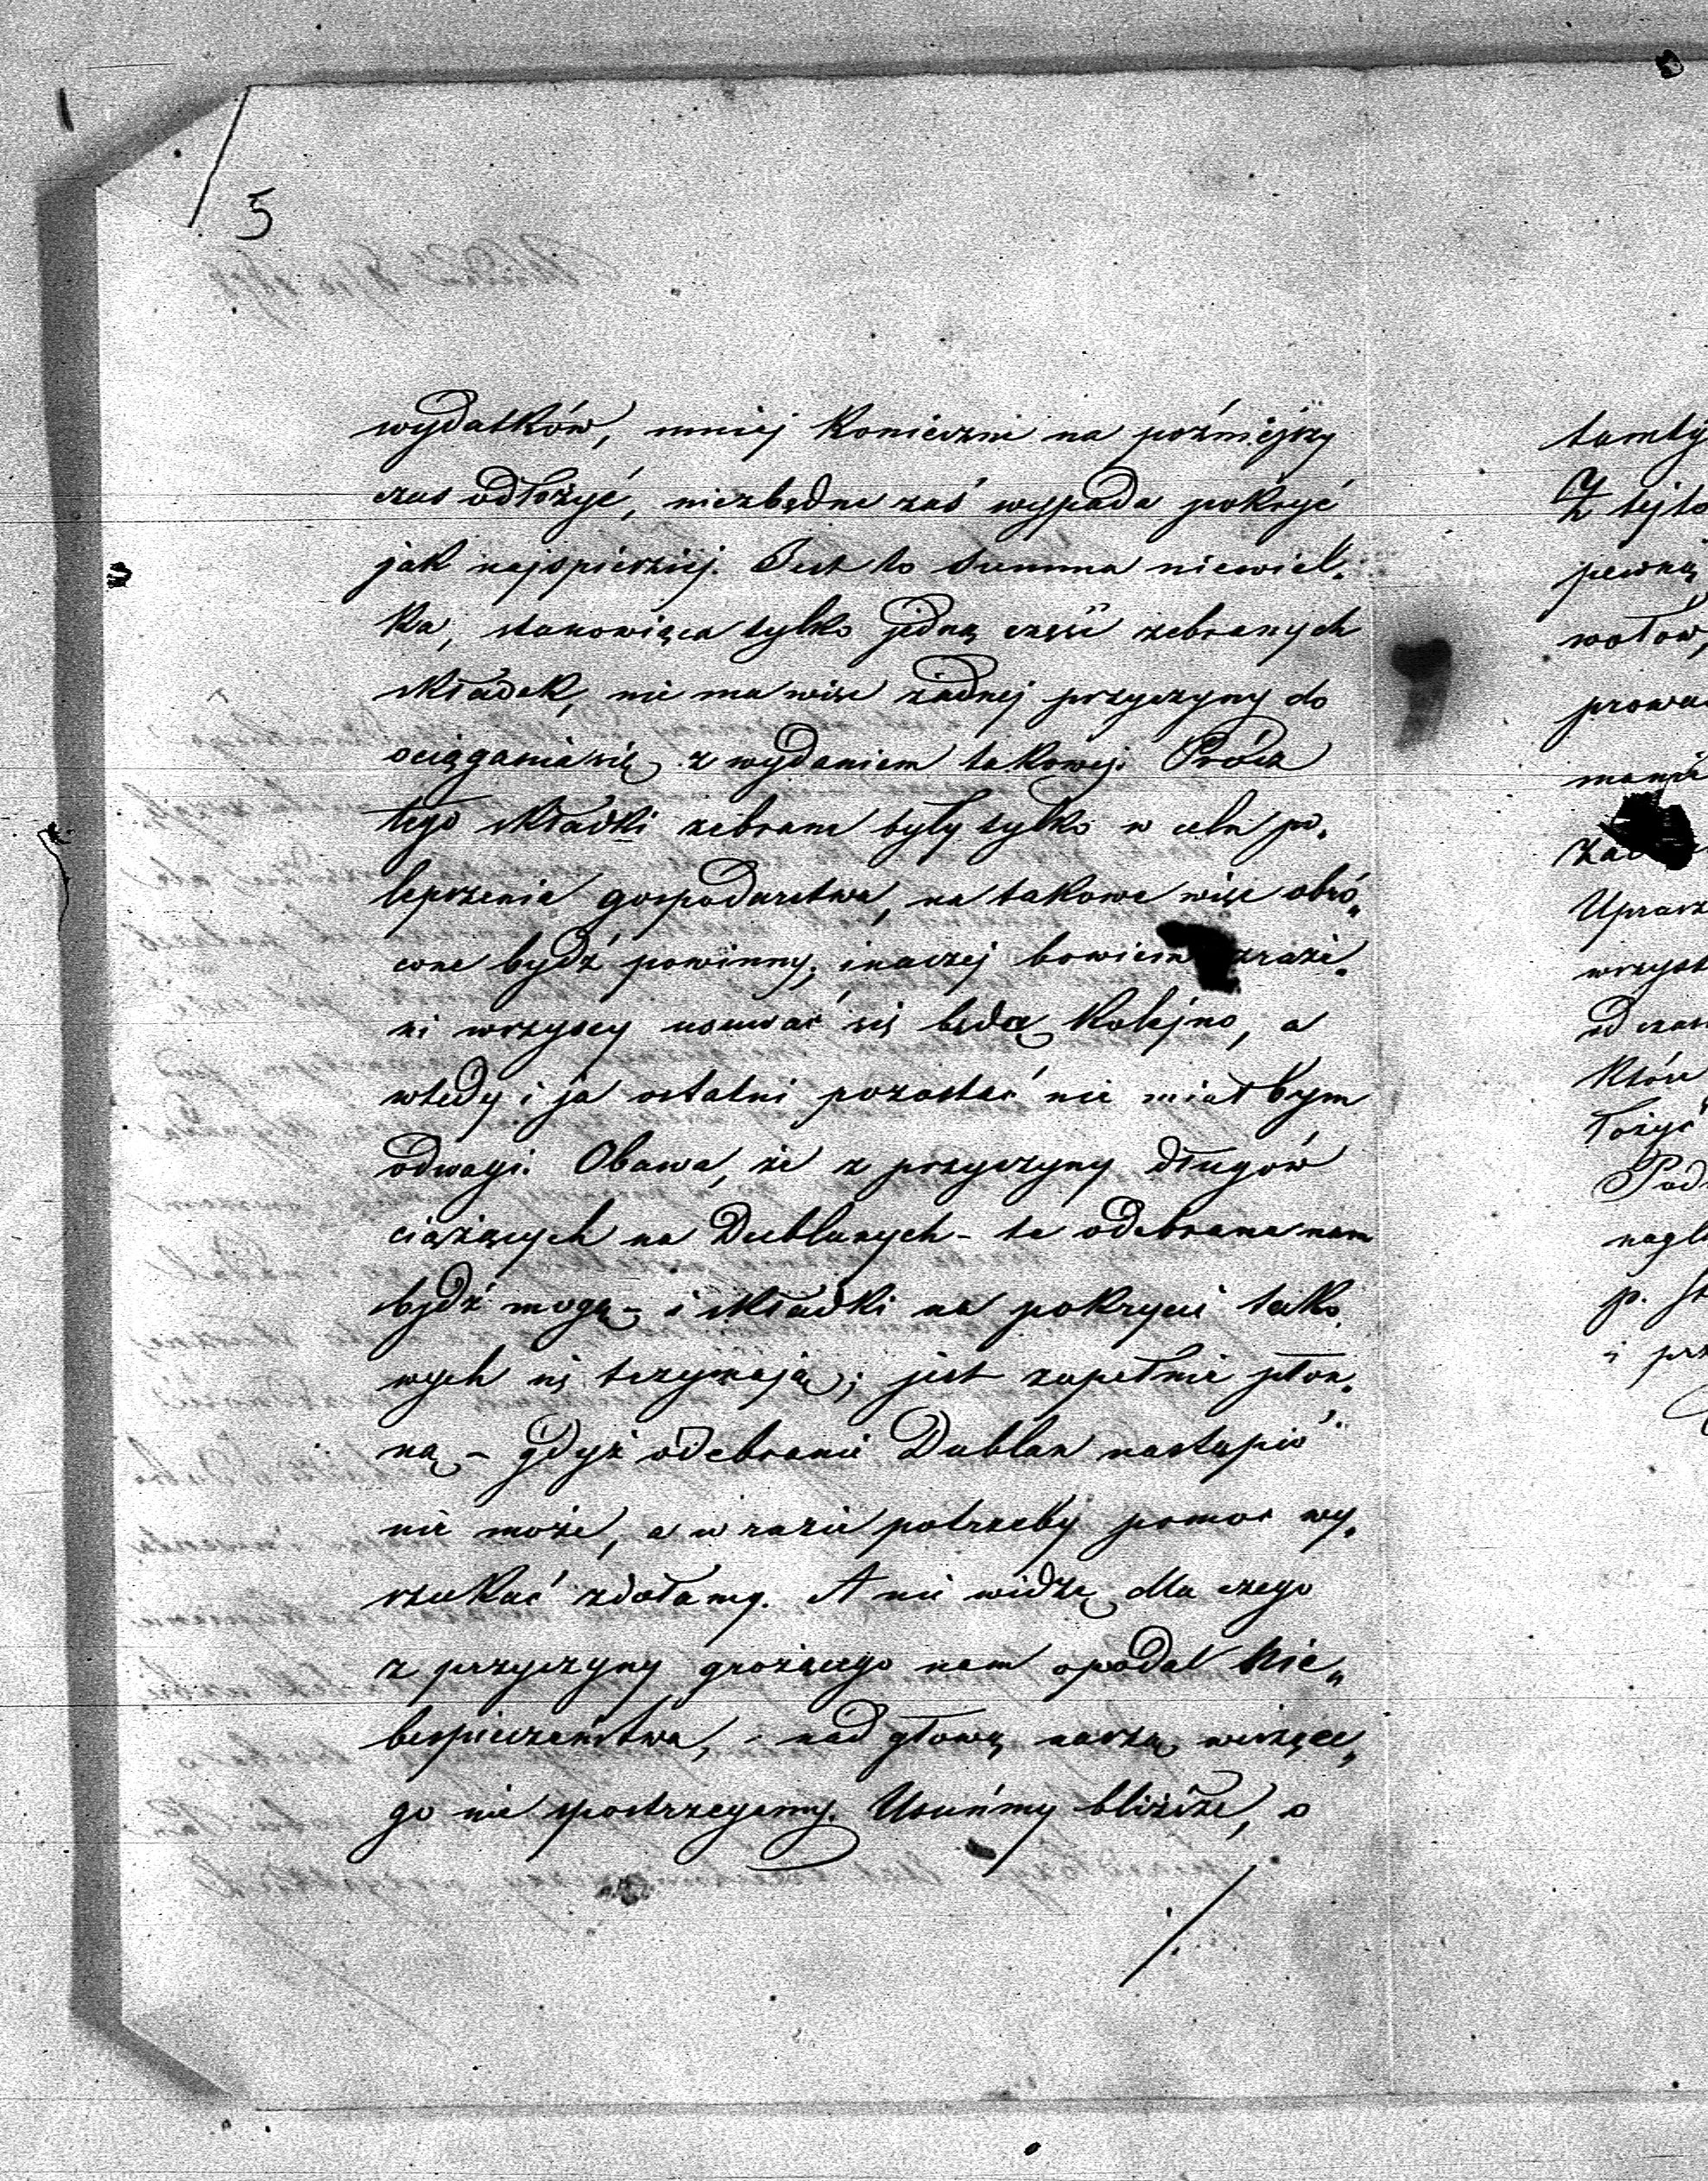 5
wydatków, mniej konieczne na poźniejszy
czas odłożyć, niezbędne zaś wypada pokryć
jak najspieszniej. Jest to summa niewiel„
ka, stanowiąca tylko jedną część zebranych
składek, nie ma więc żadnej przyczyny do
ociągania się z wydaniem takowej. Prócz
tego składki zebrane były tylko w celu po„
lepszenia gospodarstwa, na takowe więc obró„
cone bydź powinny, inaczej bowiem zraże„
ni wszyscy usuwać się będą kolejno, a
wtedy i ja ostatni pozostać nie miałbym
odwagi. Obawa, że z przyczyny długów
ciążących na Dublanych - te odebrane nam
bydź mogą - i składki na pokrycie tako„
wych się trzymają; jest zupełnie płon„
ną - gdyż odebranie Dublan nastąpić
nie może, a w razie potrzeby pomoc wy„
szukać zdołamy. A nie widzę dla czego
z przyczyny grożącego nam opodal nie„
bespieczeństwa, - nad głową naszą wiszące„
go nie spostrzegamy. Usuńmy bliższe, o
./.
tamty
Z tejto
pewną
wołow,
prowa
Uprasz
wszyst
od czas
które
łożyć
Pod
nagl
p. St
i prz